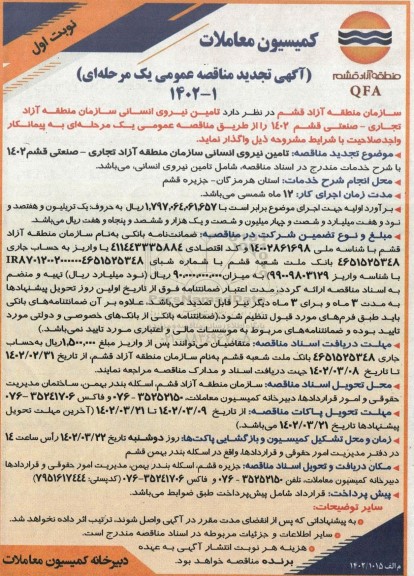 نوبت اول
کمیسیون معاملات
(آگهی تجدید مناقصه عمومی یک مرحله‌ای)
۱۴۰۲-۱
منطقه آزاد قشم
QFA
سازمان منطقه آزاد قشم در نظر دارد تامین نیروی انسانی سازمان منطقه آزاد
تجاری - صنعتی قشم ۱۴۰۲ را از طریق مناقصه عمومی یک مرحله‌ای به پیمانکار
واجدصلاحیت با شرایط مشروحه ذیل واگذار نماید.
موضوع تجدید مناقصه: تامین نیروی انسانی سازمان منطقه آزاد تجاری - صنعتی قشم۱۴۰۲
با شرح خدمات مندرج در اسناد مناقصه، شامل تامین نیروی انسانی، می‌باشد.
محل انجام شرح خدمات: استان هرمزگان- جزیره قشم
مدت زمان اجرای کار: ۱۲ ماه شمسی می‌باشد.
برآورد اولیه جهت اجرای موضوع برابر است با ۱,۷۹۷,۰۶۴,۰۶۱,۶۵۷ ریال به حروف: یک تریلیون و هفتصد و
نود و هفت میلیارد و شصت و چهار میلیون و شصت و یک هزار و ششصد و پنجاه و هفت ریال می‌باشد.
مبلغ و نوع تضمین شرکت در مناقصه: ضمانت‌نامه بانکی به‌نام سازمان منطقه آزاد
قشم با شناسه ملی ۱۴۰۰۲۸۶۱۶۹۸ و کد اقتصادی ۴۱۱۴۴۳۳۳۵۸۸۴ یا واریز به حساب جاری
۴۶۵۱۵۲۵۳۴۸ بانک ملت شعبه قشم با شماره شبای
با شناسه واریز (۹۹۰۰۹۸۰۳۱۲۹) به میزان ۹۰,۰۰۰,۰۰۰,۰۰۰ ریال (نود میلیارد ریال) تهیه و منضم
به اسناد مناقصه ارائه گردد. مدت اعتبار ضمانتنامه فوق از تاریخ اولین روز تحویل پیشنهادها
به مدت ۳ ماه و برای ۳ ماه دیگر نیز قابل تمدید می‌باشد. علاوه بر آن ضمانتنامه‌های بانکی
باید طبق فرم‌های مورد قبول تنظیم شود.(ضمانتنامه بانکی از بانک‌های خصوصی و دولتی مورد
تایید بوده و ضمانتنامه‌های مربوط به موسسات مالی و اعتباری مورد تایید نمی‌باشد.)
مهلت دریافت اسناد مناقصه: متقاضیان می‌توانند پس از واریز مبلغ ۱,۵۰۰,۰۰۰ ریال به‌حساب
جاری ۴۶۵۱۵۲۵۳۴۸ بانک ملت شعبه قشم به‌نام سازمان منطقه آزاد قشم، از تاریخ ۱۴۰۲/۰۲/۳۱
تا تاریخ ۱۴۰۲/۰۳/۰۸ جهت دریافت اسناد و مدارک مناقصه مراجعه نمایند.
محل تحویل اسناد مناقصه: سازمان منطقه آزاد قشم، اسکله بندر بهمن، ساختمان مدیریت
حقوقی و امور قراردادها، دبیرخانه کمیسیون معاملات. ۳۵۲۵۲۱۵۰ -۰۷۶ و فاکس ۳۵۲۴۱۷۰۶ -۰۷۶
مهلت تحویل پاکات مناقصه: از تاریخ ۱۴۰۲/۰۳/۰۹ تا تاریخ ۱۴۰۲/۰۳/۲۱ (آخرین مهلت تحویل
پیشنهادها تاریخ ۱۴۰۲/۰۳/۲۱ می‌باشد.)
زمان و محل تشکیل کمیسیون و بازگشایی پاکت‌ها: روز دوشنبه تاریخ ۱۴۰۲/۰۳/۲۲ رأس ساعت ۱۴
در دفتر مدیریت امور حقوقی و قراردادها، واقع در اسکله بندر بهمن قشم
مکان دریافت و تحویل اسناد مناقصه: جزیره قشم، اسکله بندر بهمن، مدیریت امور حقوقی و قراردادها
دبیرخانه کمیسیون معاملات، تلفن ۳۵۲۵۲۱۵۰ - ۰۷۶ و فاکس ۳۵۲۴۱۷۰۶-۰۷۶ (کدپستی: ۷۹۵۱۶۱۷۴۴۴)
پیش پرداخت: قرارداد شامل پیش‌پرداخت طبق ضوابط می‌باشد.
سایر توضیحات:
به پیشنهاداتی که پس از انقضای مدت مقرر در آگهی واصل شوند، ترتیب اثر داده نخواهد شد.
سایر اطلاعات و جزئیات مربوطه در اسناد مناقصه مندرج است.
هزینه هر نوبت انتشار آگهی به عهده
برنده مناقصه خواهد بود.
دبیرخانه کمیسیون معاملات
م الف ۱۴۰۲/۱۰۱۵